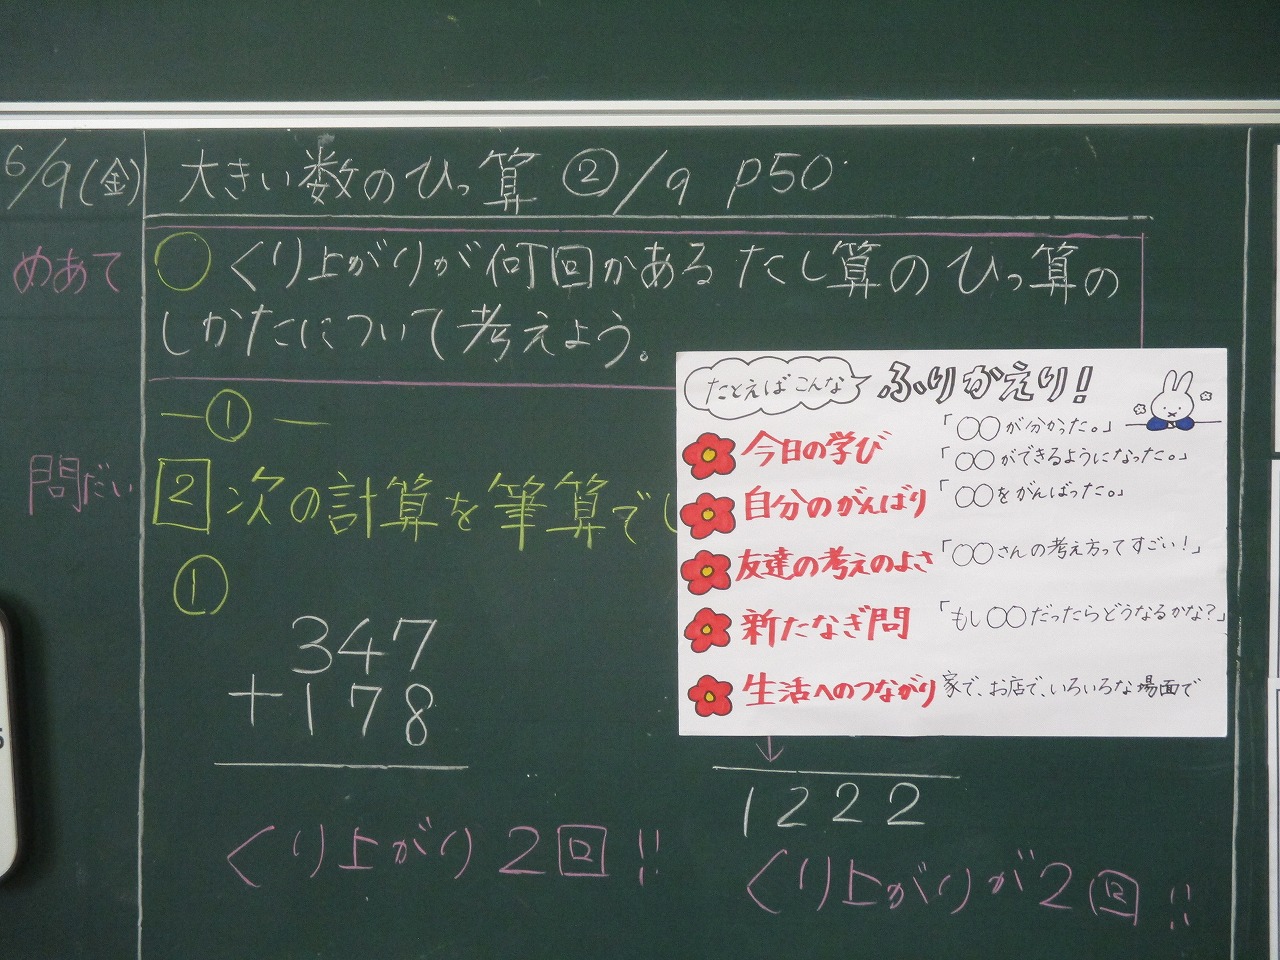 6/9(金)
大きい数のひっ算 ②/9 P50
めあて
○くり上がりが何回かある たし算の ひっ算の
しかたについて考えよう。
ー①ー
問だい
2 次の計算を筆算でし
①
347
+178
くり上がり2回!!
たとえばこんな ふりかえり!
今日の学び 「○○が分かった。」
「○○ができるようになった。」
自分のがんばり 「○○をがんばった。」
友達の考えのよさ 「○○さんの考え方ってすごい!」
新たなぎ問 「もし○○だったらどうなるかな?」
生活へのつながり 家で、お店で、いろいろな場面で
1222
くり上がりが2回!!